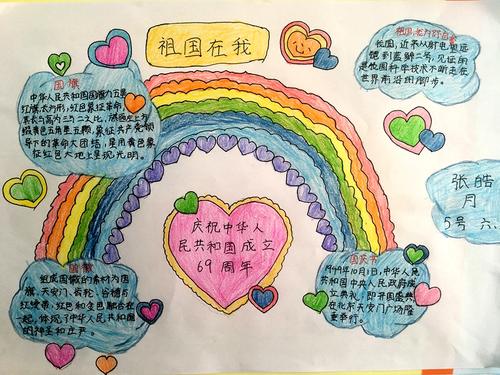 祖国在我
国旗
中华人民共和国国旗为五星
红旗,长方形,红色象征革命,
其长与高为三与二之比,旗面左上方
缀黄色五角星五颗,象征共产党领
导下的革命大团结,星用黄色象
征红色大地上呈现光明。
长国,近来从射电望远
镜到蓝鲸二号,见证的
是我国科学技术不断走在
世界前沿的脚步。
张皓
月
5号 六.
庆祝中华人
民共和国成立
69周年
国徽
组成国徽的素材为国
旗、天安门、齿轮、谷穗与
红绶带,红色和金色融合在
一起,体现了中华人民共和国
的神圣和庄严。
国庆节
1949年10月1日,中华人民
共和国中央人民政府成
立典礼,即开国盛典
在北京天安门广场隆
重举行。